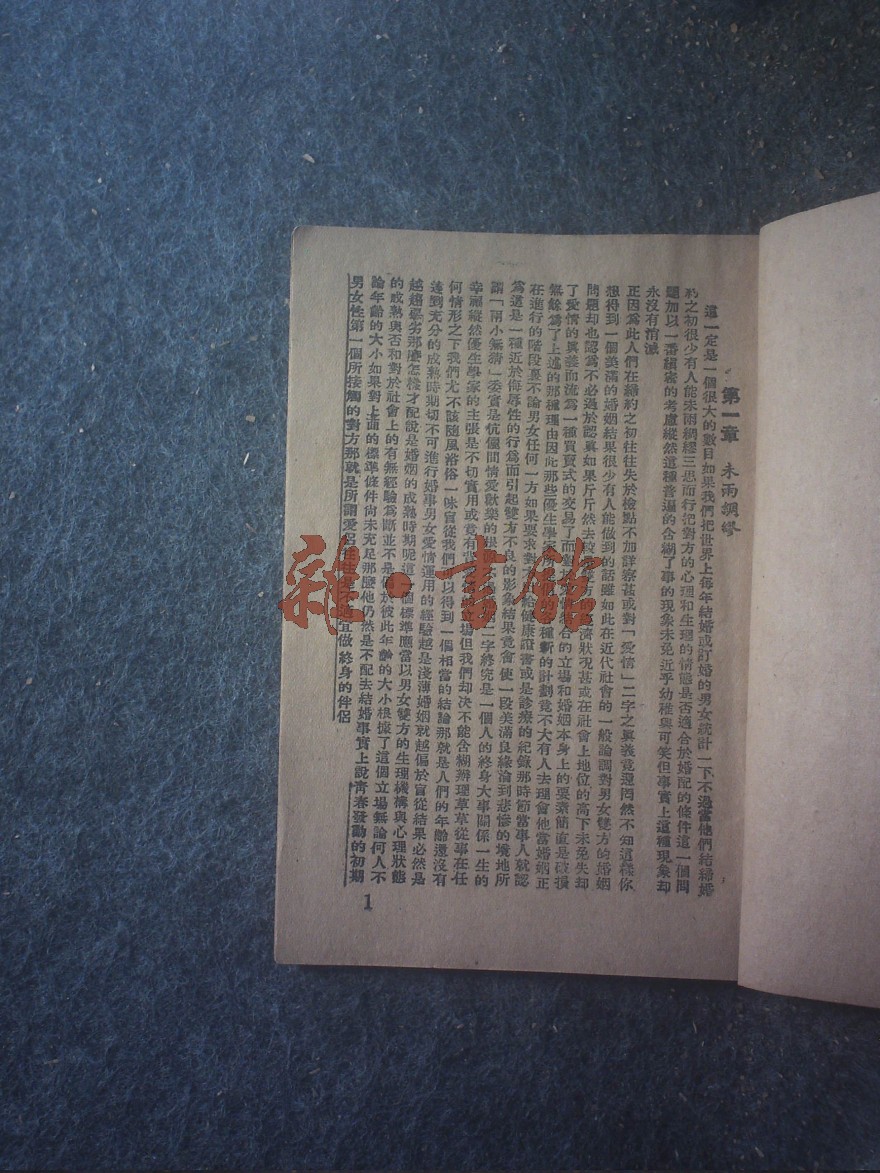 第一章 未雨綢繆
這一定是一個很大的數目如果我們把世界上每年結婚或訂婚的男女統計一下不過當他們結締婚
約之初很少有人能未雨綢繆三思而行把對方的心理和生理的情態是否適合於婚配的條件這一個問
題加以一番縝密的考慮縱然這種普遍的含糊了事的現象未免近乎幼稚與可笑但事實上這種現象却
永沒有消滅
正因爲此人們在締約之初往往失於檢點不加詳察甚或對「愛情」二字之眞義竟還罔然不知這樣你
想得到一個美滿的婚姻結果很少有人能做到的話雖如此在近代社會的一般論調對男女雙方的婚姻
問題却也認爲不必過於認眞如果斤斤然去 方的 濟狀況甚或在社會上地位的高下未免失却
了愛情的眞義而流爲一種買賣式的交易了而對 合的立場和婚姻本身上的要素簡直是破損
無餘爲了上述的那種理由因此那些優生學家所 種新的計劃竟不大有人去理會他當婚姻正
在進行的階段裏不論男女任何一方如果要求對方 給健康證書或是診療的紀錄那時節當事人就認
爲這是一種近於侮辱性的行爲而引起雙方不良的影象結果竟會使一段美滿良緣淪到悲慘的境地所
謂「兩小無猜」委實是伉儷間情愛歡樂的根 二字終究是一個人的終身大事關係一生的
幸福縱然優生學家的主張是不切實用或竟有背 立場但我們却決不能含糊辦理草草從事在任
何情形之下我們尤不該隨風俗俗一味盲從我們 以得到一個相當的結論那就是人們的年齡還沒有
達到充分的成熟時期切不可進行婚事男女愛情運用的經驗越是淺薄婚姻就越偏於盲從結果必然是
越趨學劣那麼怎樣才配說是婚姻的成熟時期呢這 個標準應當以男女雙方的生理機構與心理狀態
的成熟與否和對於社會上的有無經驗爲斷並不是 於彼此年齡的大小根據了這個立場無論何人不
論年齡的大小如果對上面的標準條件尙未充足那麼他仍然是不配去結婚事實上說靑春發動的初期
男女性第一個所接觸的對方那就是所謂愛侶 宜做終身的伴侶
1
雜·書館